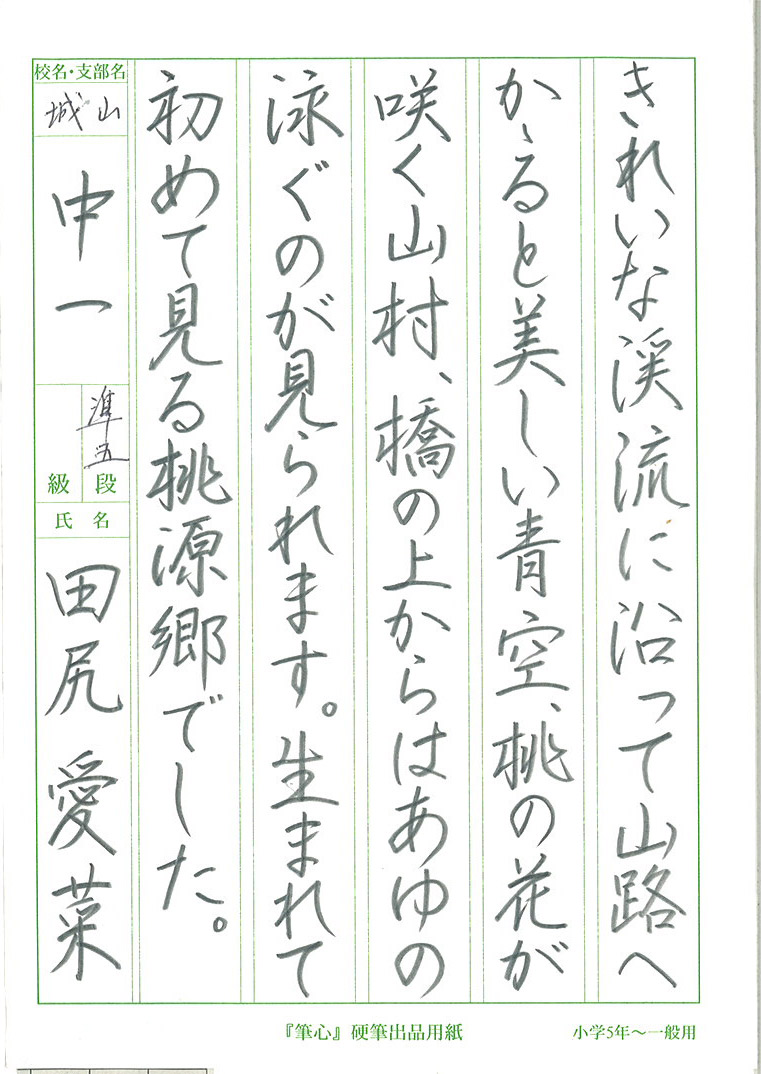 きれいな渓流に沿って山路へ
かゝると美しい青空、桃の花が
咲く山村、橋の上からはあゆの
泳ぐのが見られます。生まれて
初めて見る桃源郷でした。
校名・支部名
城山
中一
準五
級 段
氏名
田尻 愛菜
『筆心』硬筆出品用紙
小学5年〜一般用